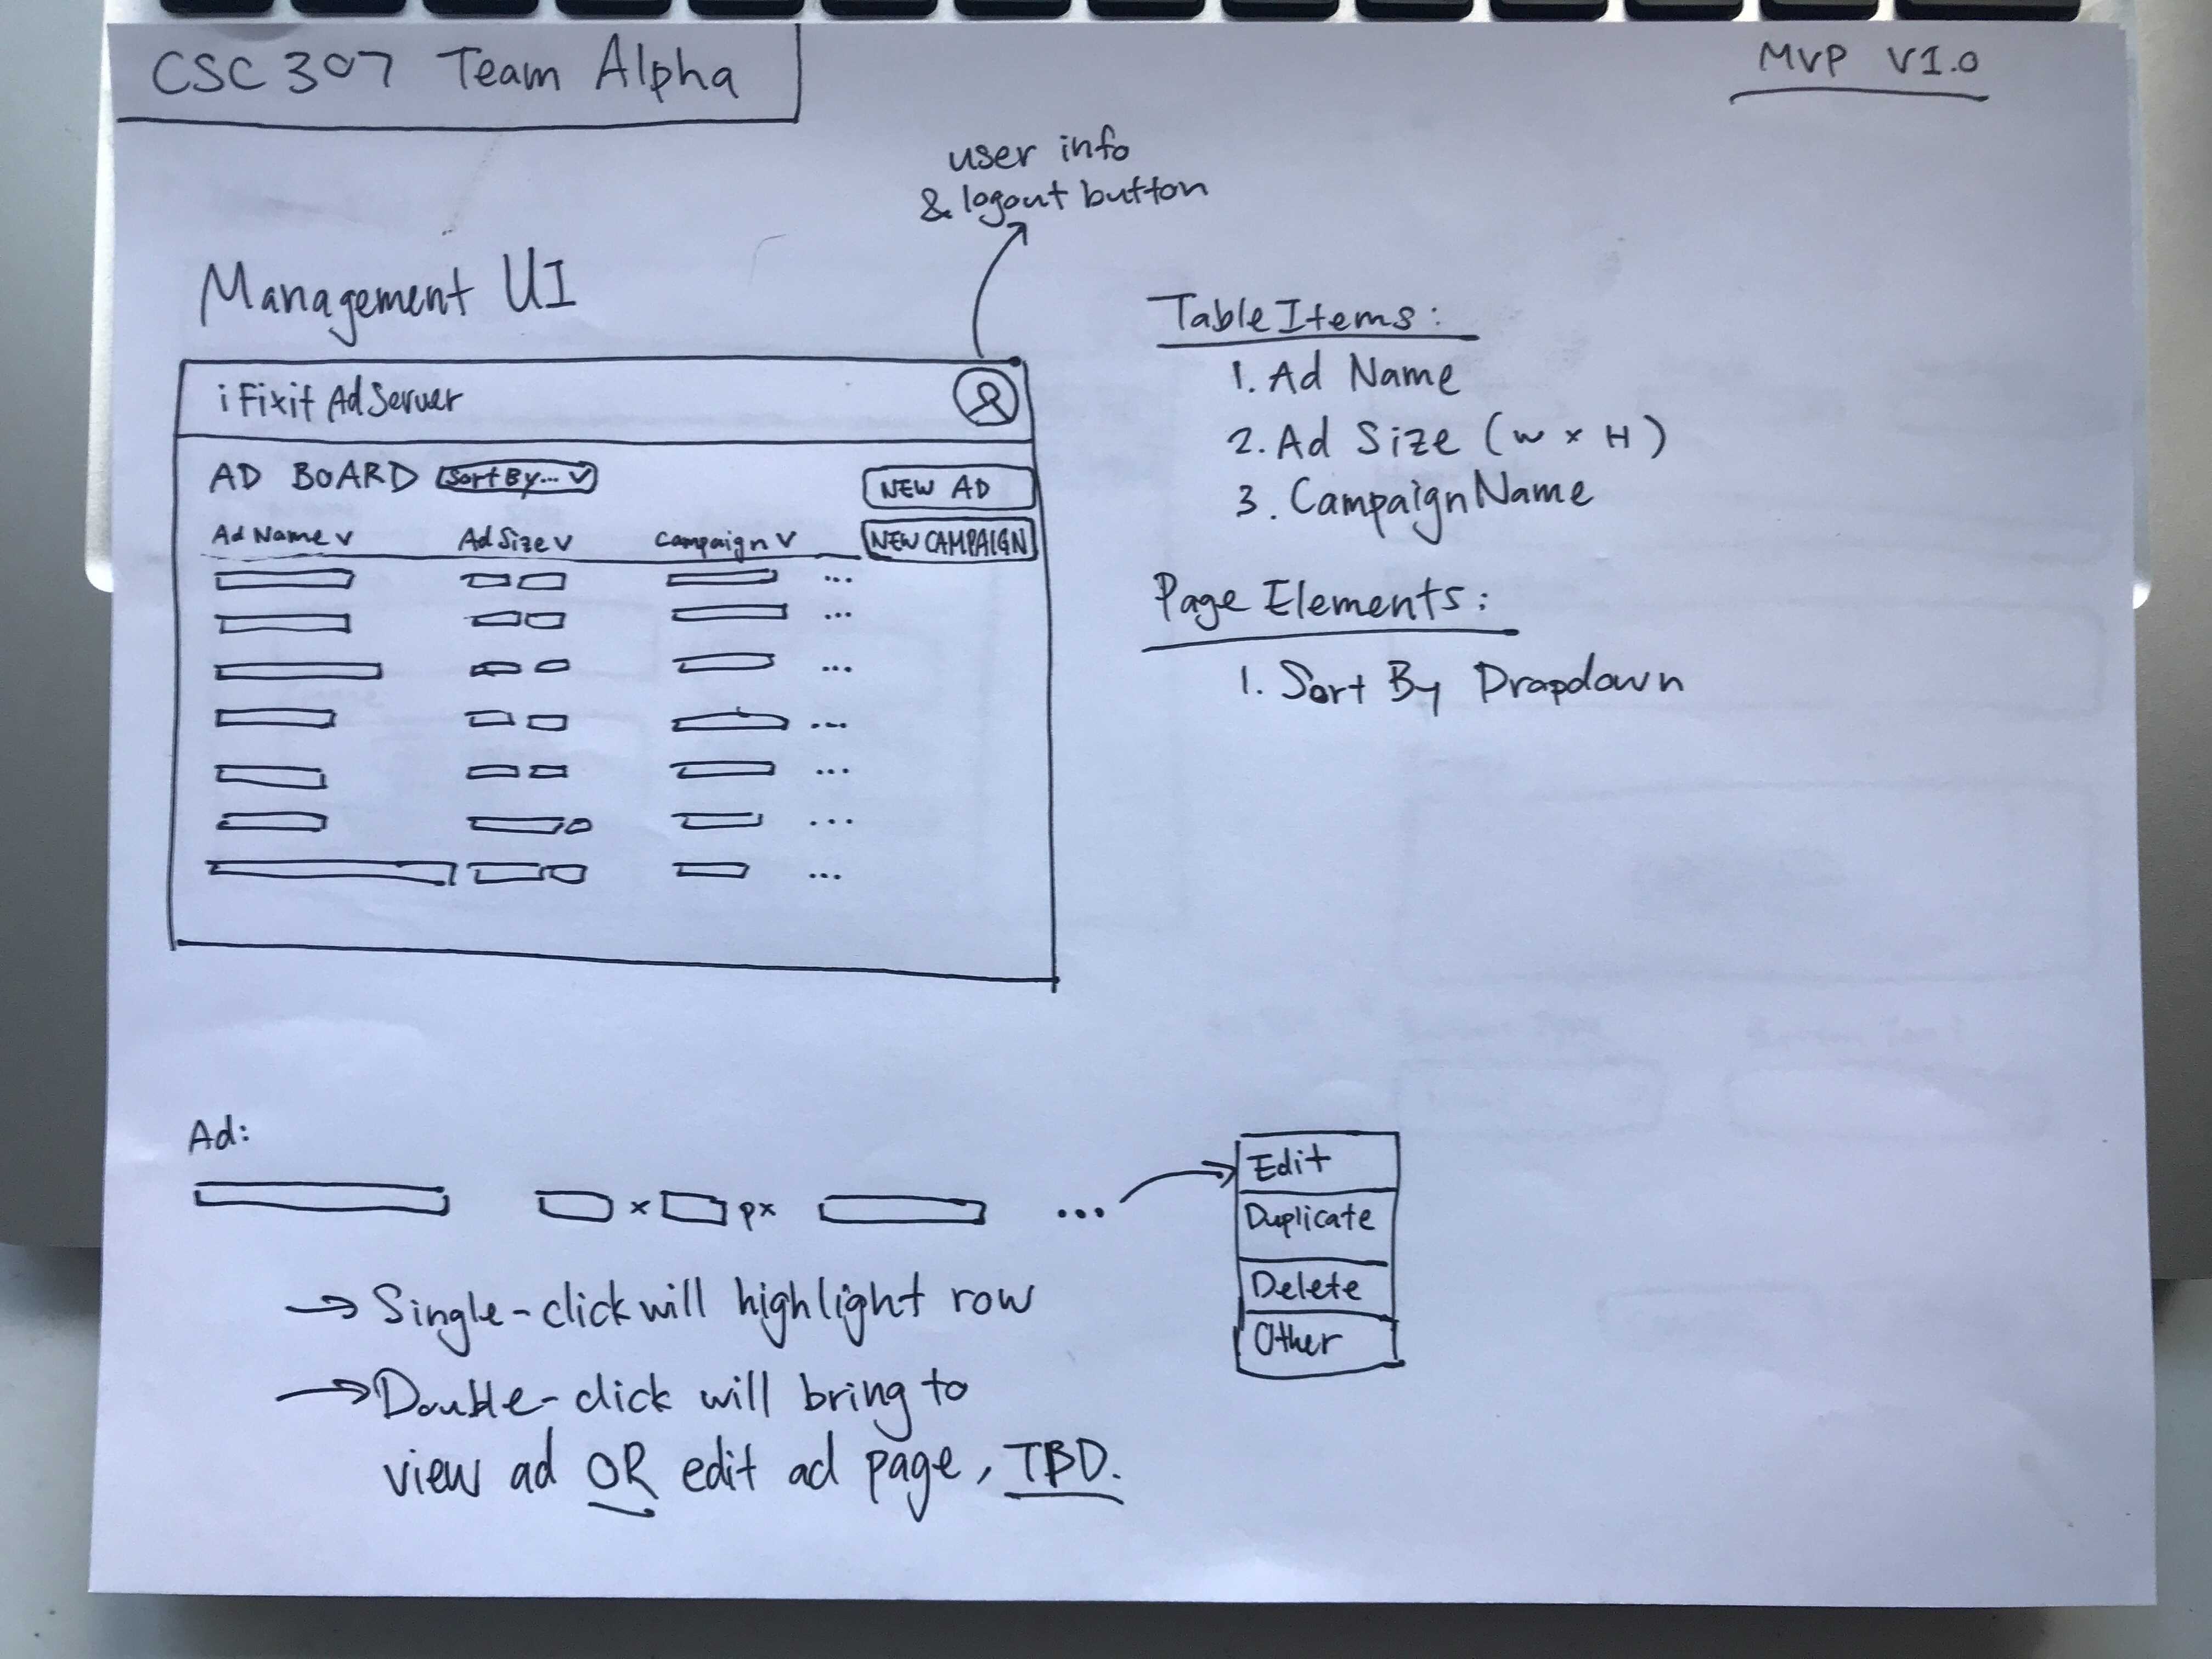 CSC 307 Team Alpha
MVP V1.0
user info
& logout button
Management UI
iFixit AdServer
AD BOARD Sort By... v
NEW AD
NEW CAMPAIGN
Ad Name v Ad Size v Campaign v
...
...
...
...
...
...
...
Table Items:
1. Ad Name
2. Ad Size (W x H)
3. Campaign Name
Page Elements:
1. Sort By Dropdown
Ad:
x px ...
Edit
Duplicate
Delete
Other
→ Single-click will highlight row
→ Double-click will bring to
view ad OR edit ad page, TBD.